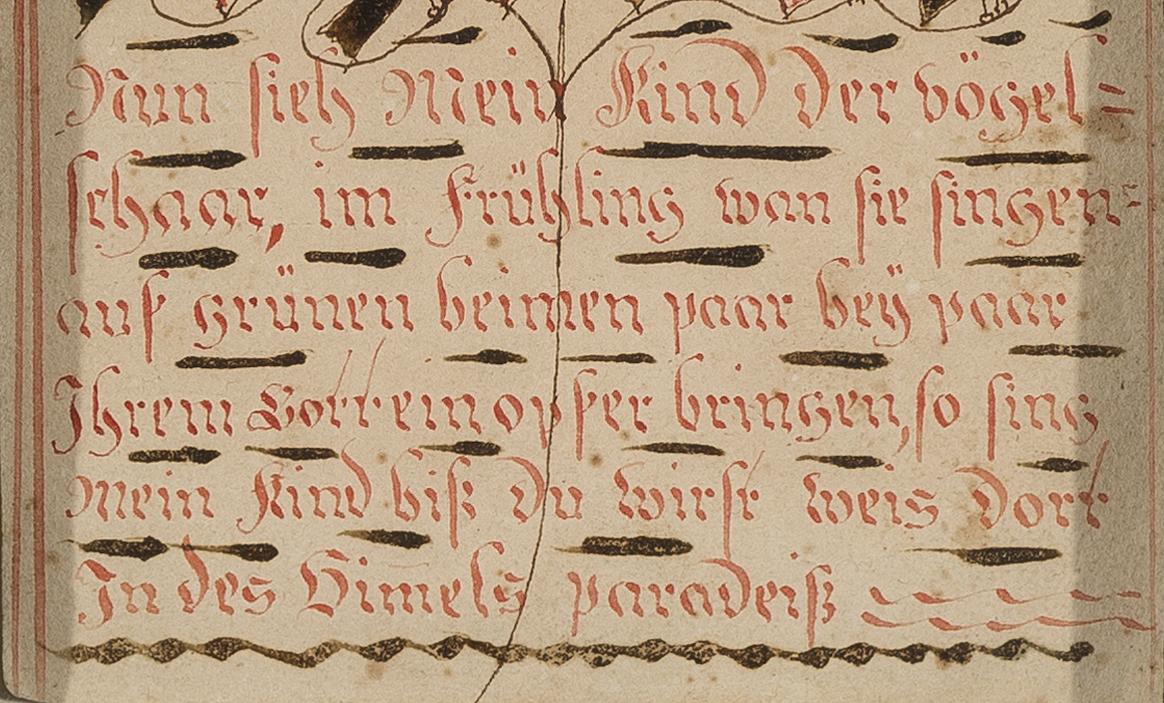 Nun sieh Mein Kind der vögel=
schaar, im Frühling wan sie singen=
auf grünen beimen paar bey paar
Ihrem Gott ein opfer bringen, so sing
Mein Kind biß du wirst weis dort
In des Himels paradeiß